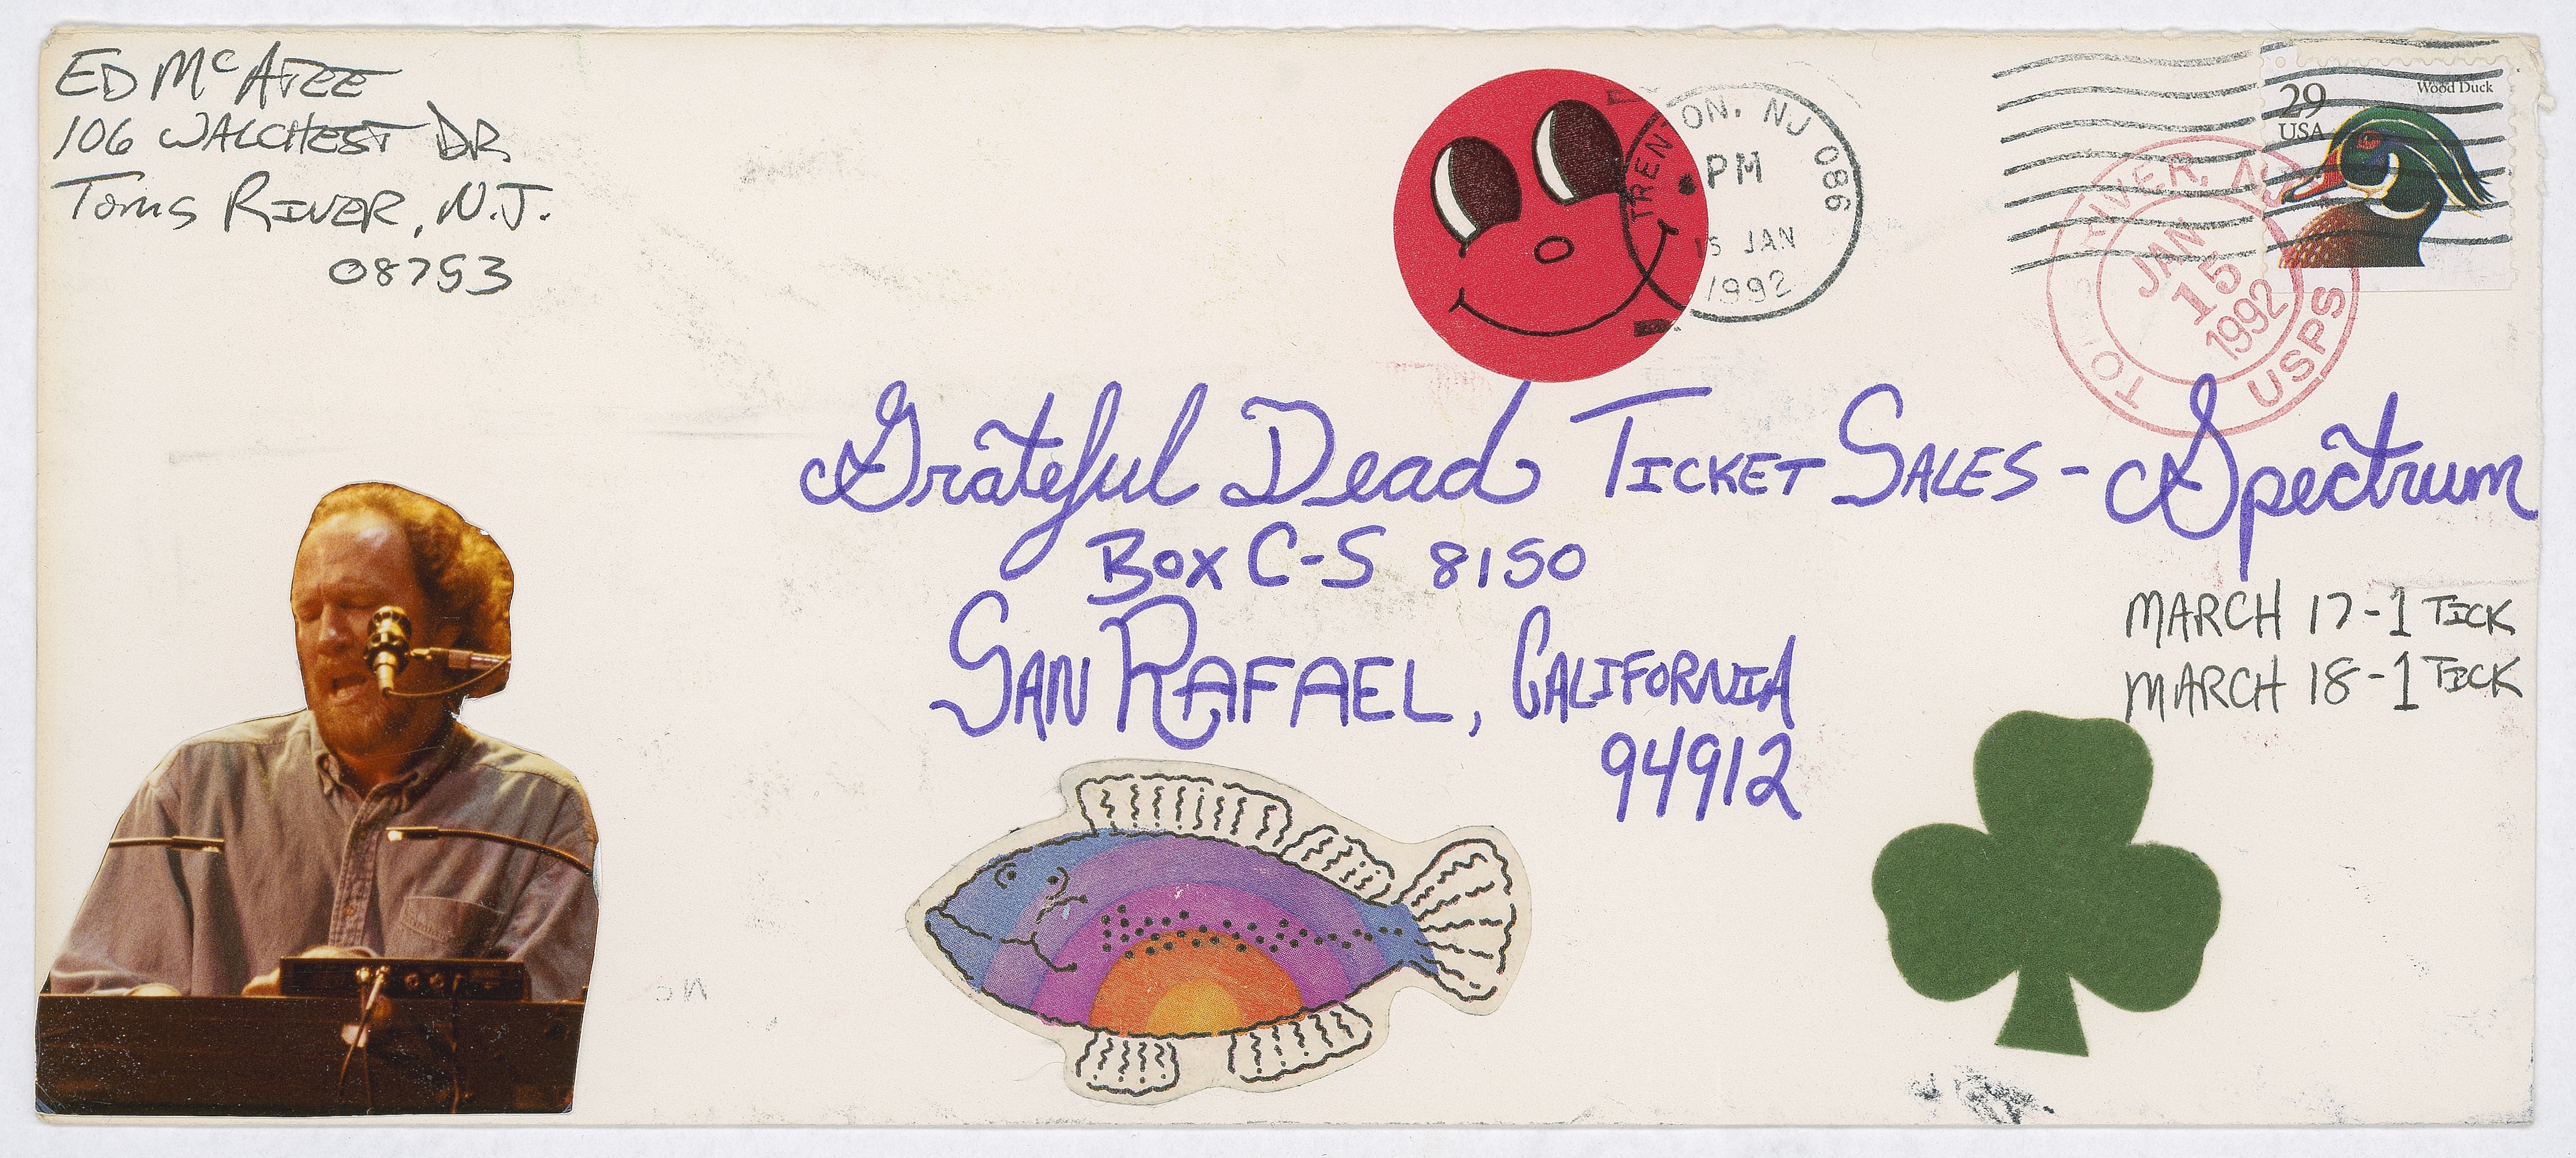 ED McAFEE
106 WALCHEST DR
Toms RIVER, N.J.
08753
TRENTON, NJ 086
PM
15 JAN
1992
29
USA
Wood Duck
RIVER, NJ
JAN
15
1992
USPS
Grateful Dead TICKET SALES - Spectrum
BOX C-S 8150
SAN RAFAEL, CALIFORNIA
94912
MARCH 17-1 TICK
MARCH 18-1 TICK